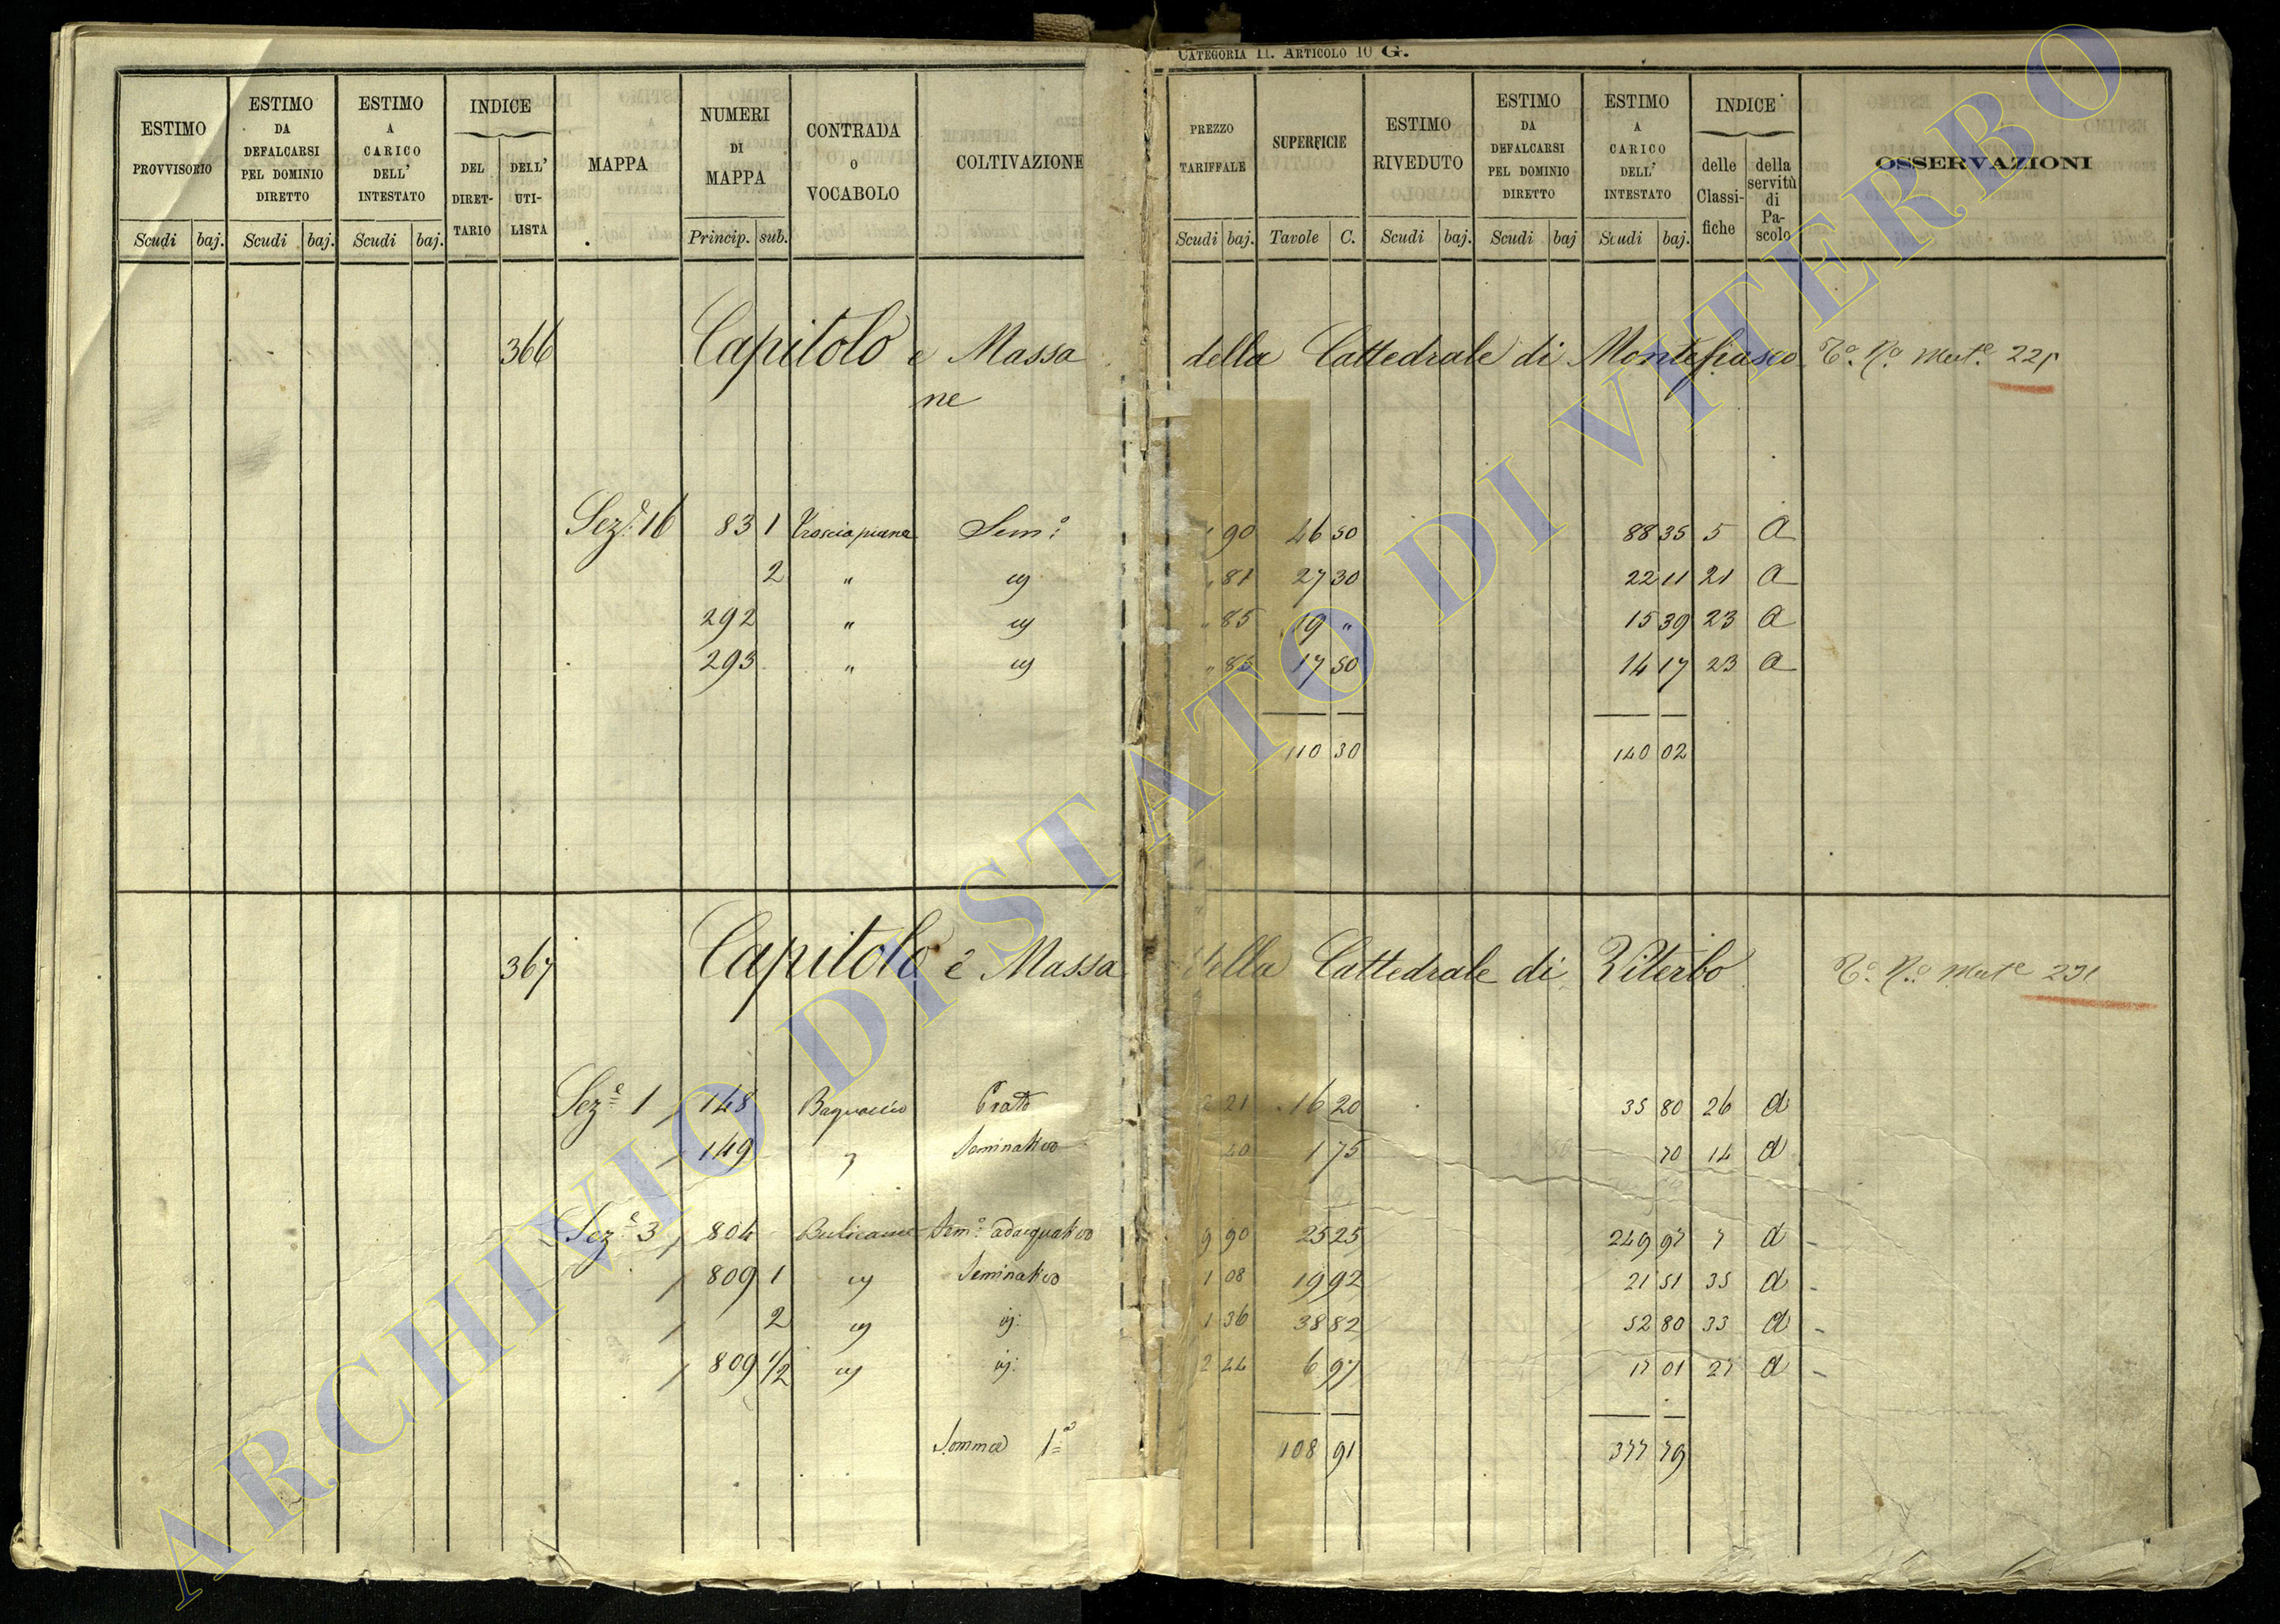 CATEGORIA II. ARTICOLO 10 G.
ESTIMO PROVVISORIO
ESTIMO DA DEFALCARSI PEL DOMINIO DIRETTO
ESTIMO A CARICO DELL' INTESTATO
INDICE
DEL DIRET-TARIO
DELL' UTI-LISTA
MAPPA
NUMERI DI MAPPA
CONTRADA O VOCABOLO
COLTIVAZIONE
PREZZO TARIFFALE
SUPERFICIE
ESTIMO RIVEDUTO
ESTIMO DA DEFALCARSI PEL DOMINIO DIRETTO
ESTIMO A CARICO DELL' INTESTATO
INDICE
delle Classi-fiche
della servitù di Pa-scolo
OSSERVAZIONI
Scudi baj. Scudi baj. Scudi baj. Princip. sub. Scudi baj. Tavole C. Scudi baj. Scudi baj Scudi baj.
366 Capitolo e Massa della Cattedrale di Montefiasco
ne
Sez.e 16 83 1 Trosciapiana Sem.o 1 90 46 50 88 35 5 a
2 " 81 27 30 22 11 21 a
292 " " 85 19 " 15 39 23 a
293 " 17 50 14 17 23 a
110 30 140 02
367 Capitolo e Massa della Cattedrale di Viterbo
Sez.e 1 148 Bagnaccio Prato 2 21 16 20 35 80 26 a
149 Seminativo 40 1 75 70 14 a
Sez.e 3 804 Bulicame Sem.o adacquativo 9 90 25 25 249 97 7 a
809 1 Seminativo 1 08 19 92 21 51 35 a
2 1 36 38 82 52 80 33 a
809 1/2 2 44 6 97 17 01 27 a
Somma 1a 108 91 377 79
ARCHIVIO DI STATO DI VITERBO